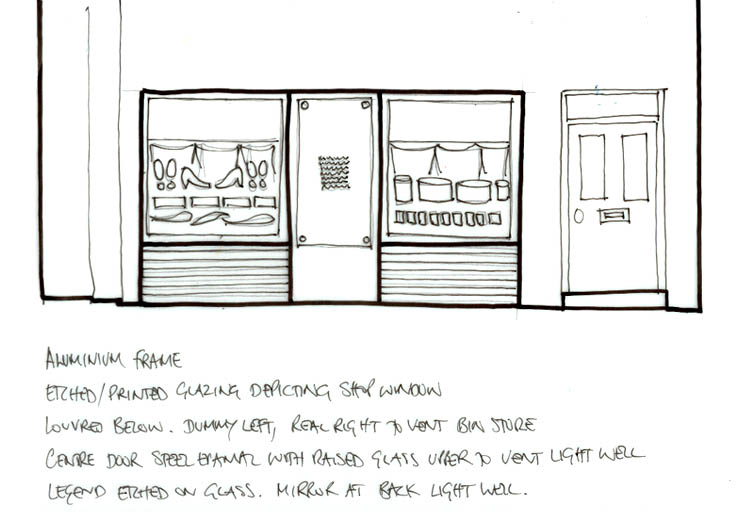 ALUMINIUM FRAME
ETCHED/PRINTED GLAZING DEPICTING SHOP WINDOW
LOUVRED BELOW. DUMMY LEFT, REAL RIGHT TO VENT BIN STORE
CENTRE DOOR STEEL ENAMAL WITH RAISED GLASS UPPER TO VENT LIGHT WELL
LEGEND ETCHED ON GLASS. MIRROR AT BACK LIGHT WELL.